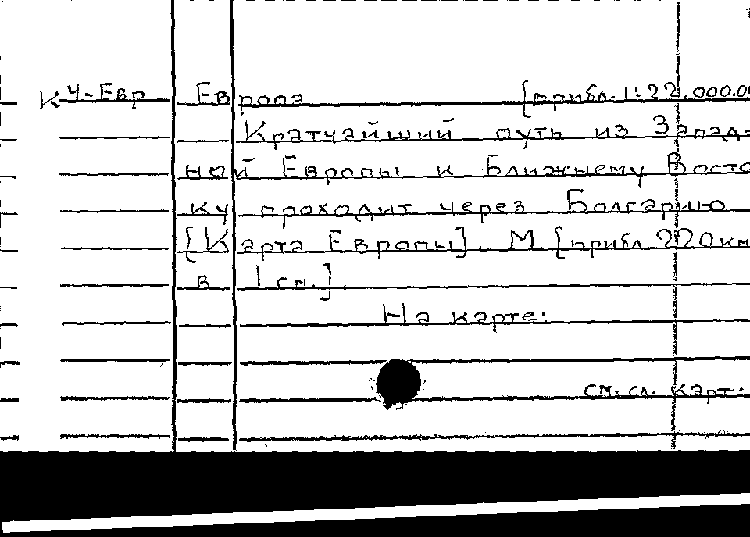 К У-Евр Европа [прибл. 1:22.000.00
Кратчайший путь из Запад-
ной Европы к Ближнему Восто
ку проходит через Болгарию
[Карта Европы]. М [прибл 220 км
в 1 см.]
На карте:
см. сл. карт: